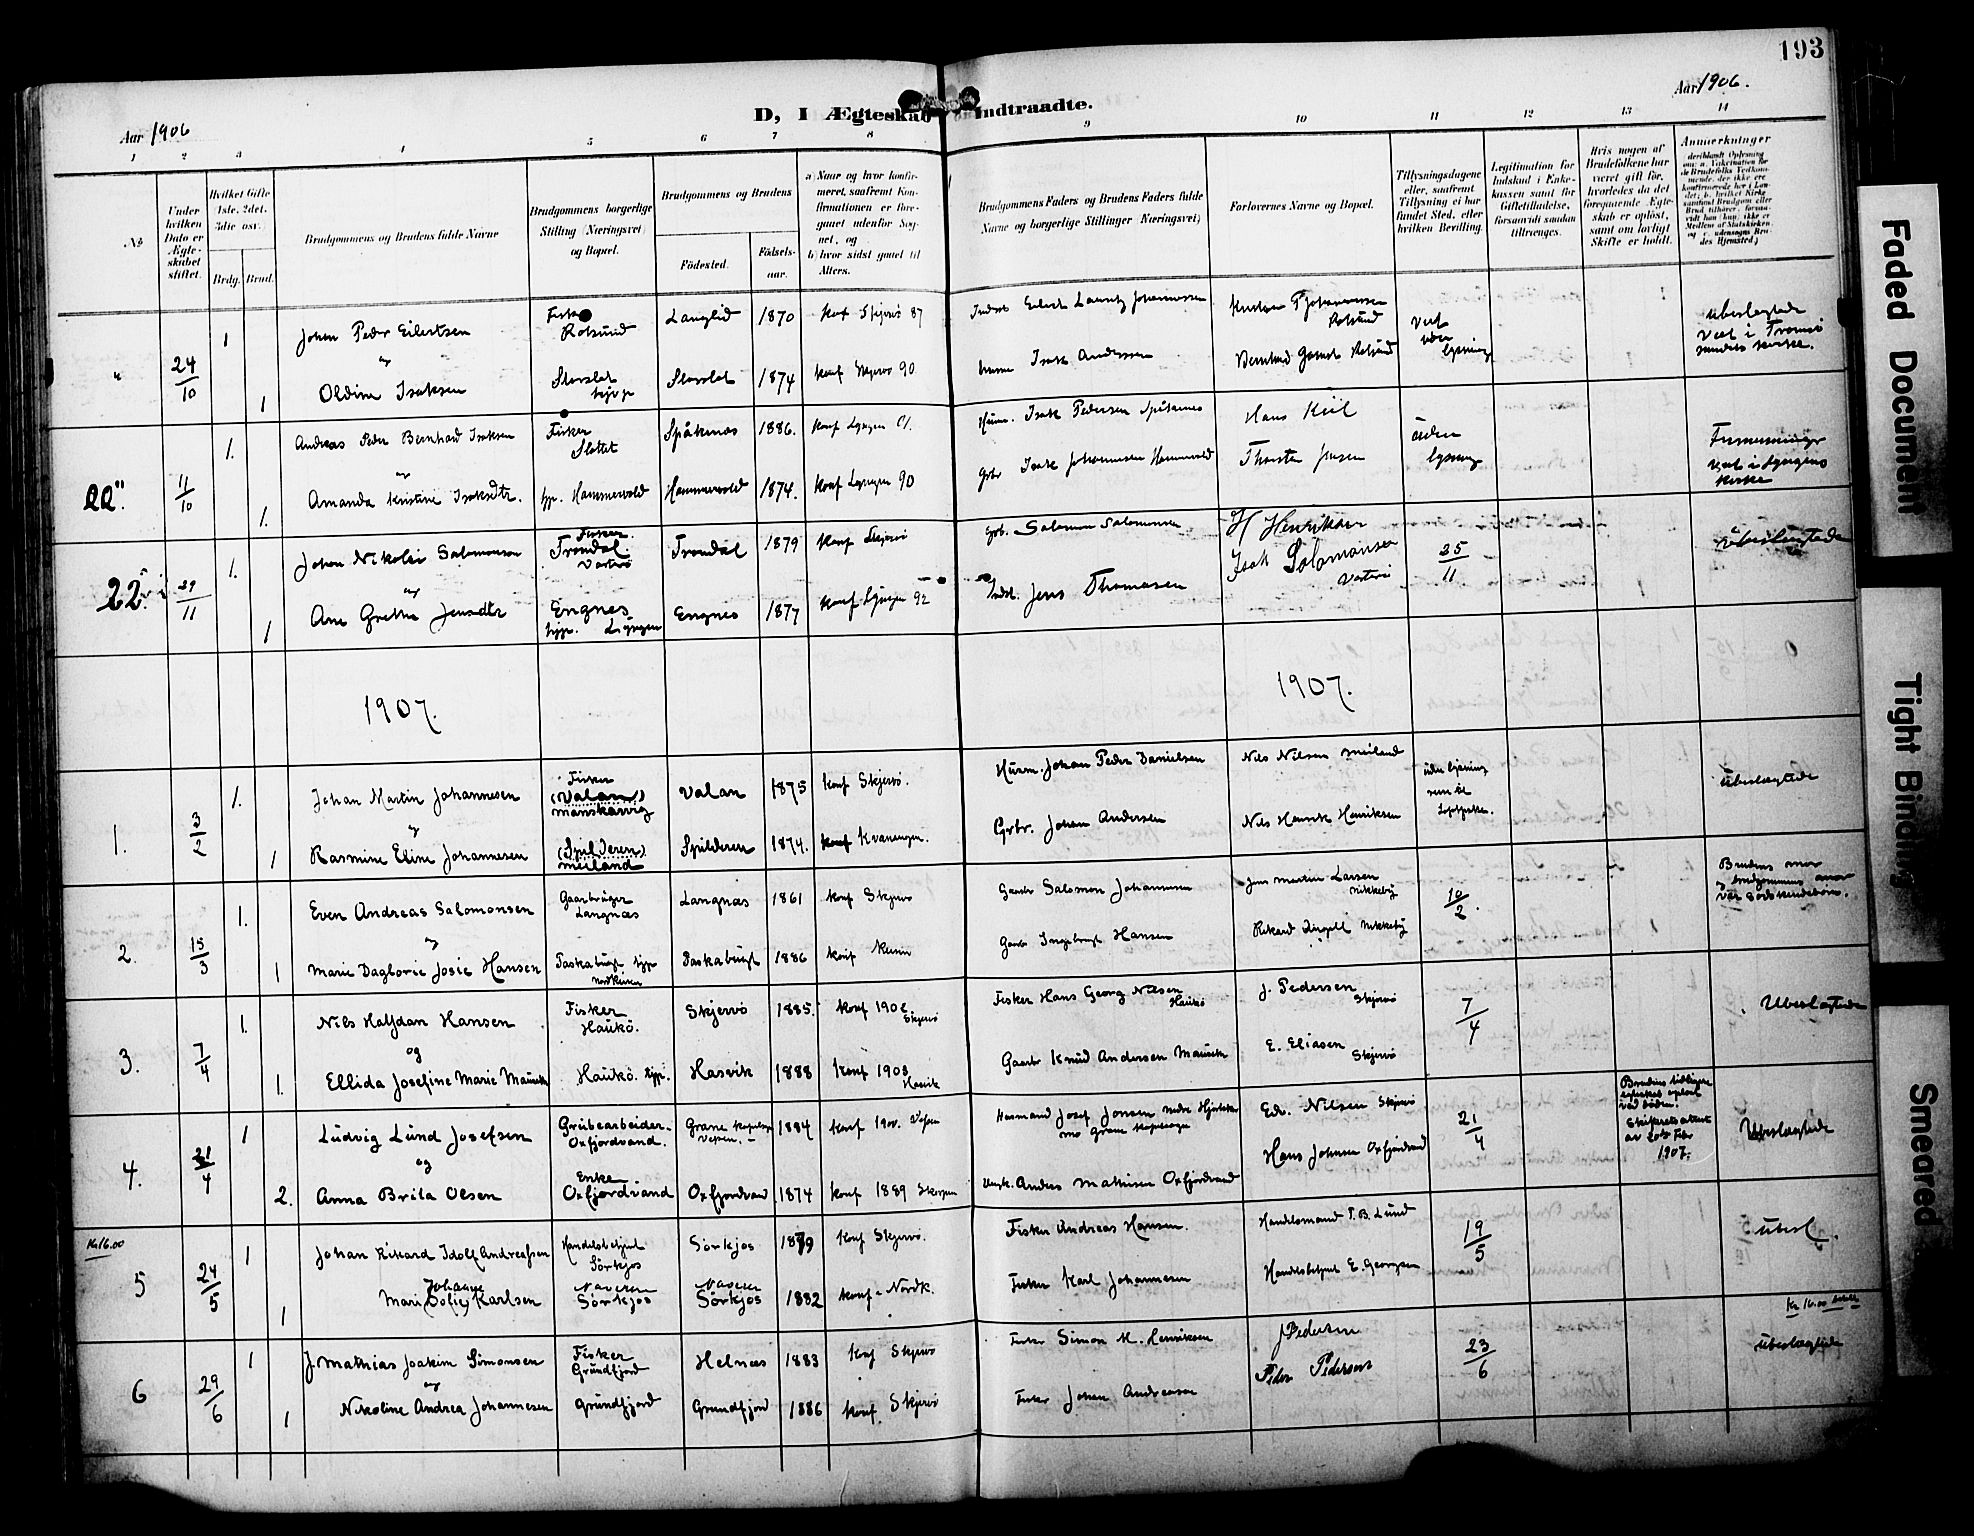 193
Aar 1906
D, I Ægteskab Indtraadte.
Aar 1906.
1 2 3 4 5 6 7 8 9 10 11 12 13 14
№
Under hvilken Dato er Ægteskabet stiftet.
Hvilket Gifte 1ste, 2det, 3die osv.
Brdg. Brud.
Brudgommens og Brudens fulde Navne
Brudgommens borgerlige Stilling (Næringsvei) og Bopæl.
Brudgommens og Brudens
Födested.
Födselsaar.
a) Naar og hvor konfirmeret, saafremt Konfirmationen er foregaaet udenfor Sognet, og
b) hvor sidst gaaet til Alters.
Brudgommens Faders og Brudens Faders fulde Navne og borgerlige Stillinger (Næringsvei)
Forlovernes Navne og Bopæl.
Tillysningsdagene eller, saafremt Tillysning ei har fundet Sted, efter hvilken Bevilling.
Legitimation for Indskud i Enkekassen samt for Giftetilladelse, forsaavidt saadan tiltrænges.
Hvis nogen af Brudefolkene har været gift för, hvorledes da det foregaaende Ægteskab er oplöst, samt om lovligt Skifte er holdt.
Anmærkninger
" 24/10 1 Johan Peder Eilertsen Fisker Rotsund Langlid 1870 konf Skjervö 87 Eilert Lauritz Johannessen Rotsund
og
1 Oldine Isaksen Storslet Storslet 1874 konf Skjervö 90 Isak Anderssen Rotsund uden lysning
ubeslægtede Viet i Tromsö
kirke.
22" 11/10 1. Andreas Peder Bernhard Isaksen Fisker Slottet Spåkenes 1886. konf Lyngen 01. Isak Pedersen Spåkenes Hans Kiil uden lysning
og
1. Amanda Kristine Isaksdtr. Hammervold Hammervold 1874. konf Lyngen 90 Gbr Isak Johannesen Hammervold Thorsten Jensen
viet i Lyngens kirke
22. 29/11 1. Johan Nikolai Salomonsen Fisker. Trondal Vorterö Trondal 1879 konf Skjervö Grb. Salomon Salomonsen H Henriksen 25/11 übeslægtede
og
1 Ane Grethe Jensdtr Engnes Lyngen Engnes 1877 konf Lyngen 92 Indst. Jens Thomasen Isak Salomonsen Vorterö
1907. 1907.
1. 3/2 1. Johan Martin Johannesen Fisker (Valan) manskarvig Valan 1875 konf Skjervö. Husm. Johan Peder Danielsen Nils Nilsen meiland uden lysning ubeslægtede
og
1 Rasmine Eline Johannesen (Spilderen) meiland Spilderen 1874. konf Kvænangen. Grbr. Johan Andersen Nils Henrik Henriksen
2. 15/3 1. Even Andreas Salomonsen Gaardbruger Langnæs Langnæs 1861 konf Skjervö Gaardbr Salomon Johannesen Jens Martin Larsen Nikkeby 10/2. Brudens mor og brudgommens mor var södskendebörn.
og
1 Marie Dagborie Josie Hansen Taskebugt Taskebugt 1886 konf Gaardb Ingebrigt Hansen Rikard Nikkeby
3. 7/4 1. Nils Halfdan Hansen Fisker Haukö. Skjervö 1885. konf 1902 Skjervö Fisker Hans Georg Nilsen Haukö J. Pedersen Skjervö 7/4 Ubeslægtede
og
1. Ellida Josefine Marie Haukö. Hasvik 1888 konf 1903 Hasvik Gaardbr Knud Andersen E. Eliasen Skjervö
4. 21/4 1 Ludvig Lund Josefsen Grubearbeider Oxfjordvand. Grane Vefsen. 1884 konf 190 Vefsen Husmand Josef Jonsen Edv. Nilsen Skjervö 21/4 Ubeslægtede
og
2. Anna Brita Olsen Enke Oxfjordvand Oxfjordvand 1874 konf 1889 Skjervö Anders Mathisen Oxfjordvand Hans Johnsen Oxfjordvand
Brudens tidligere ægteskab oplöst ved döden. Skifteretsattest av Febr 1907.
Kr 16.00
5 24/5 1 Johan Rikard Idolf Andreassen Handelsbetjent Sörkjos Sörkjos 1879 konf Skjervö. Fisker Andreas Hansen. Handelsmand T. B. Lund 19/5 ubesl.
Johanne
1 Marie Sofie Karlsen Naveren Sörkjos Naveren Sörkjos 1882 konf. Nordk. Fisker Karl Johannesen Handelsbetjent E. Georgsen
Kr 16.00
6 29/6 1 J. Mathias Joakim Simonsen Fisker Grundfjord Helnes 1883 konf Skjervö Fisker Simon M. Henriksen J Pedersen 23/6 ubeslægtede
og
1 Nikoline Andrea Johannesen Grundfjord Grundfjord 1886 konf. Skjervö Fisker Johan Andreasen Peder Pedersen
Faded Document
Tight Binding
Smeared